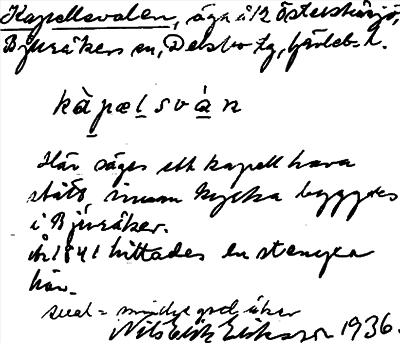 Kapellsvalen, äga å 12 Österstråsjö,
Bjuråkers sn, Delsbo tg, Gävleb. l.
kàpælsván
Här säges ett kapell hava
stått, innan kyrka byggdes
i Bjuråker.
År 1841 hittades en stenyxa
här.
sval = mindre
Nils Eriksson 1936.